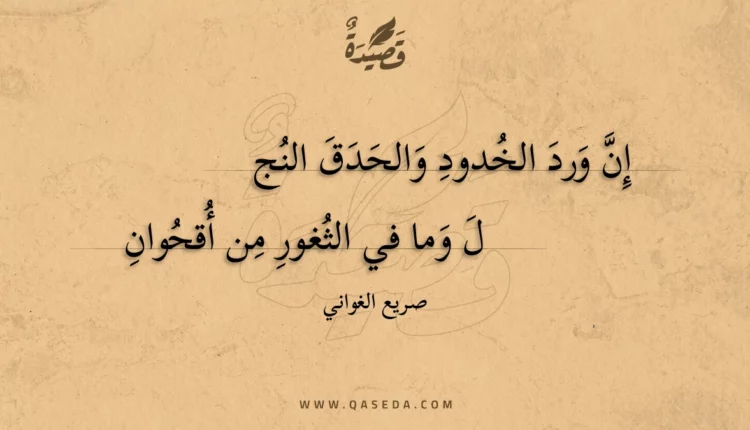 قَصِيدَةٌ
إِنَّ وَردَ الخُدودِ وَالحَدَقَ النُج
لَ وَما في الثُغورِ مِن أُقحُوانِ
صريع الغواني
WWW.QASEDA.COM